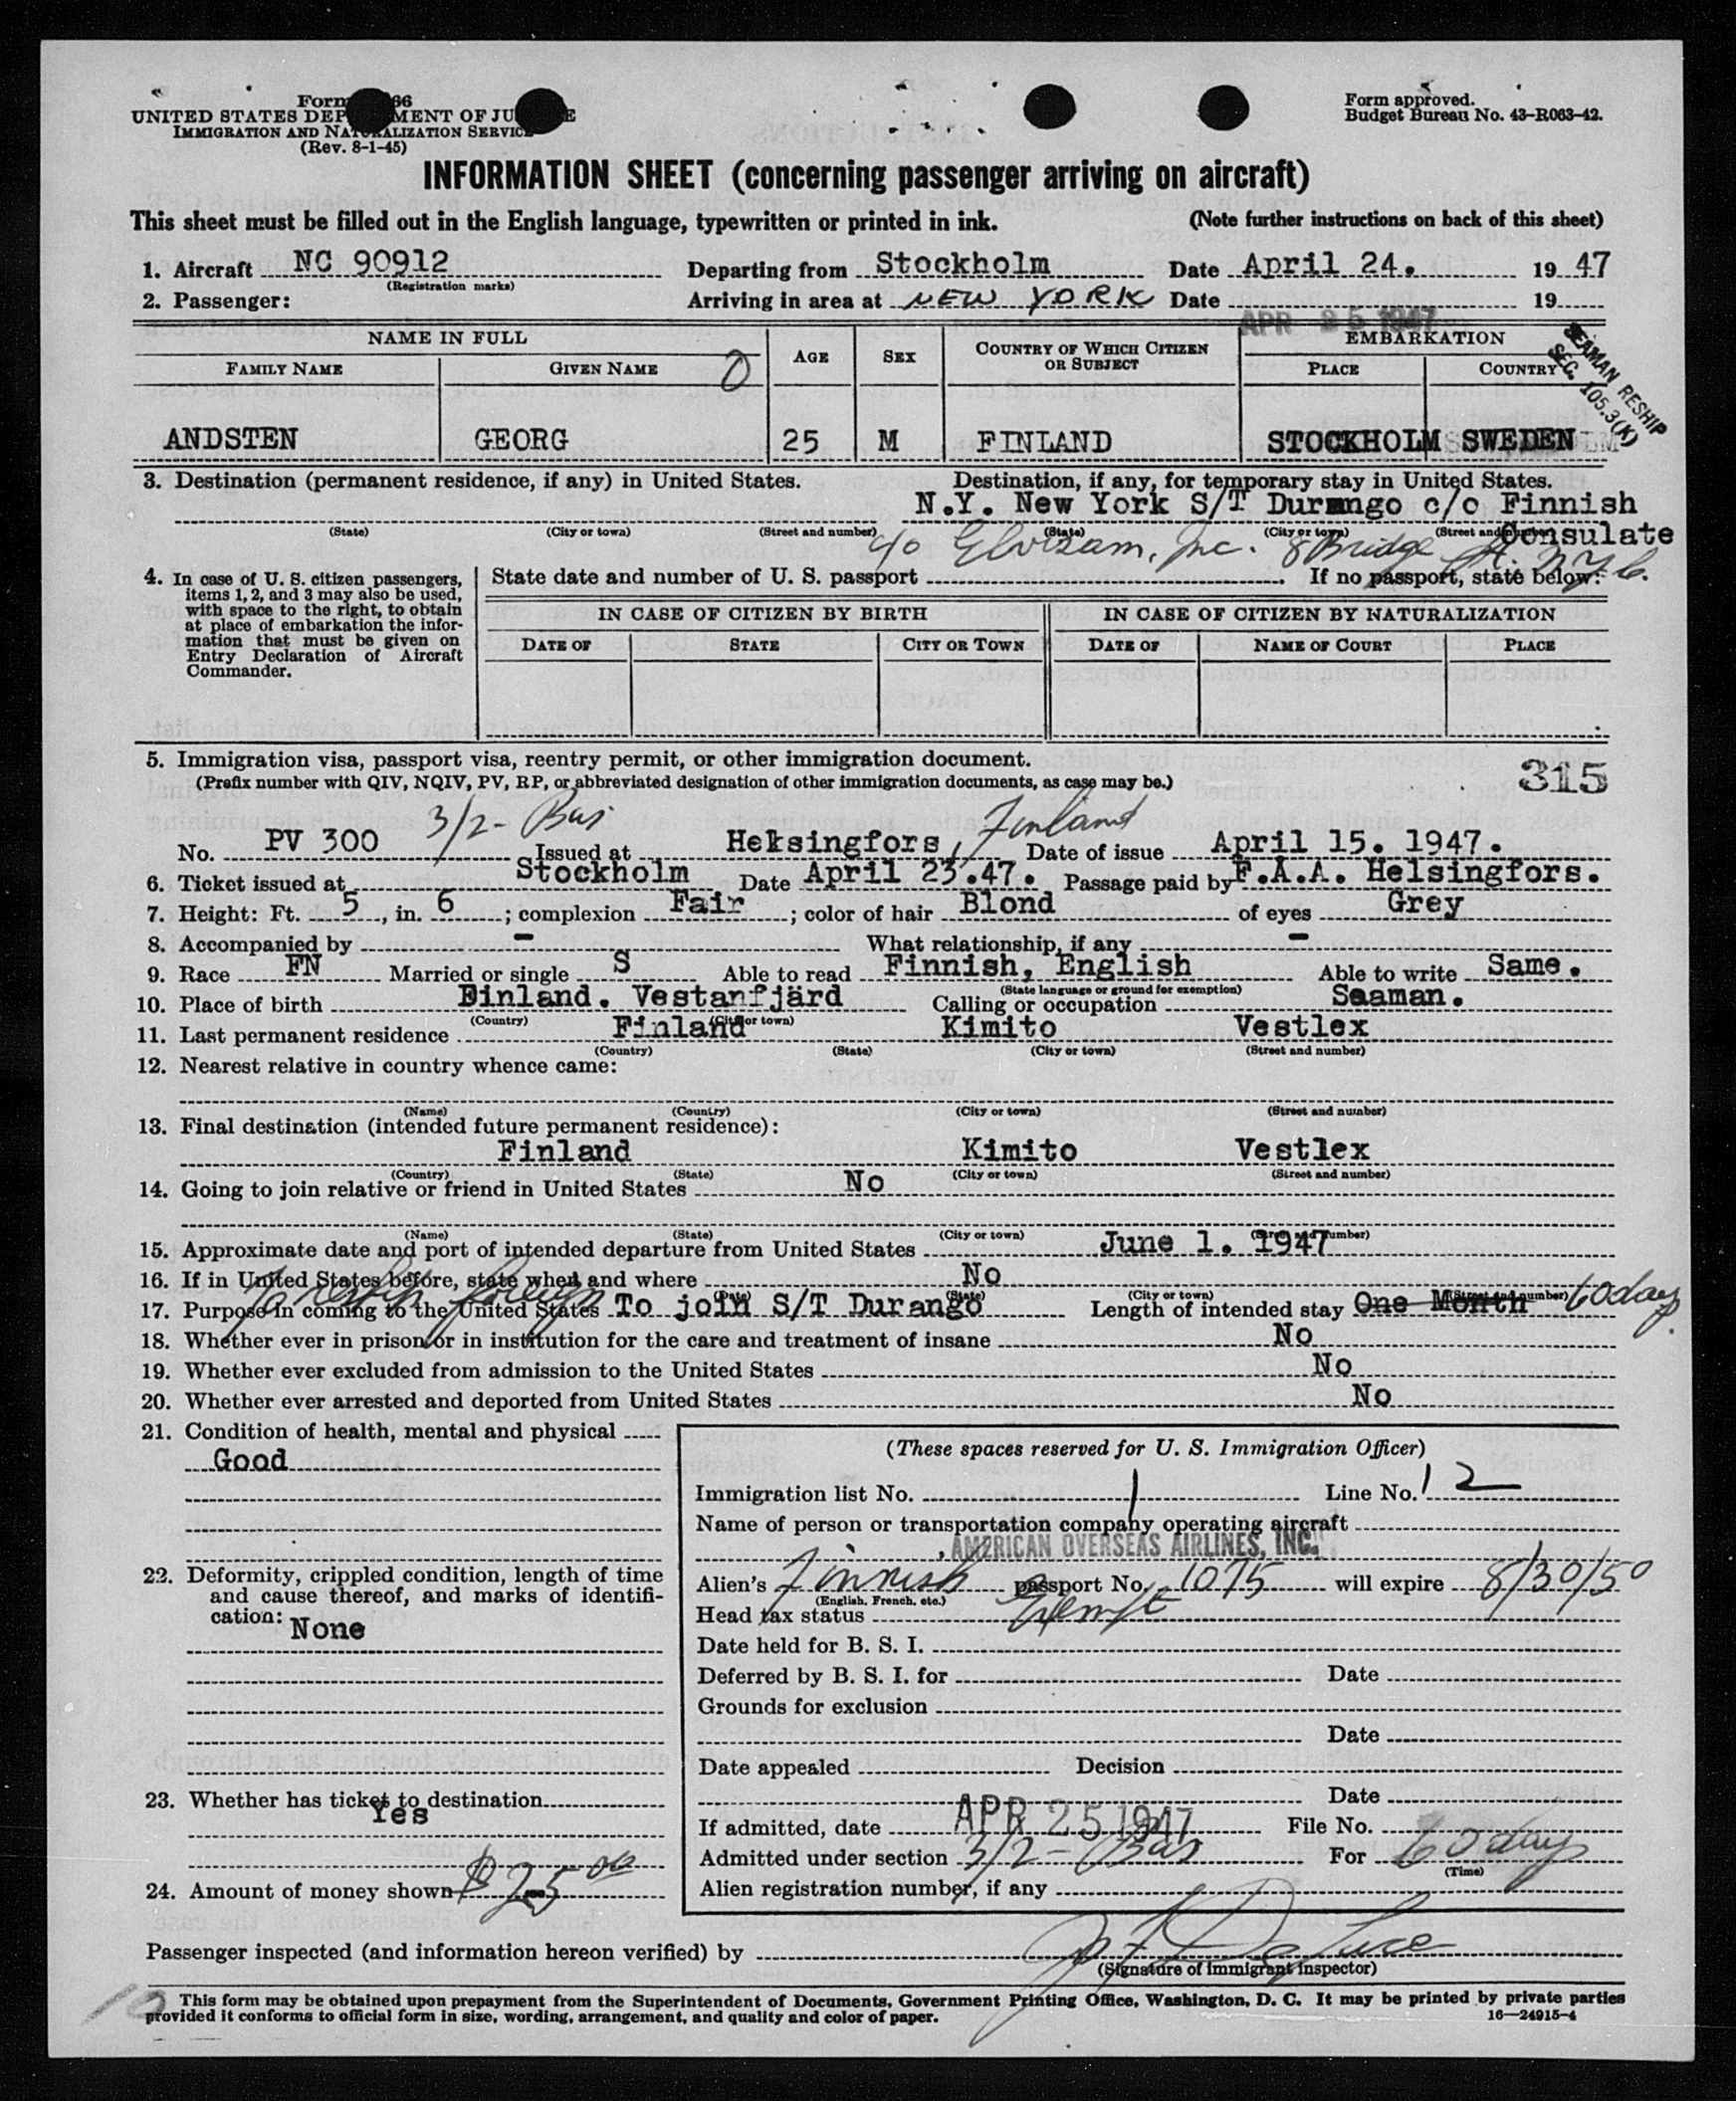 Form 66
UNITED STATES DEPARTMENT OF JUSTICE
IMMIGRATION AND NATURALIZATION SERVICE
(Rev. 8-1-45)
Form approved.
Budget Bureau No. 43-R063-42.
INFORMATION SHEET (concerning passenger arriving on aircraft)
This sheet must be filled out in the English language, typewritten or printed in ink. (Note further instructions on back of this sheet)
1. Aircraft NC 90912 Departing from Stockholm Date April 24. 19 47
(Registration marks)
2. Passenger: Arriving in area at NEW YORK Date 19
APR 25 1947
NAME IN FULL AGE SEX COUNTRY OF WHICH CITIZEN OR SUBJECT EMBARKATION
FAMILY NAME GIVEN NAME O PLACE COUNTRY
SEAMAN RESHIP
SEC. 105.3(K)
ANDSTEN GEORG 25 M FINLAND STOCKHOLM SWEDEN
3. Destination (permanent residence, if any) in United States. Destination, if any, for temporary stay in United States.
N.Y. New York S/T Durango c/o Finnish
(State) (City or town) (Street and number) (State) (City or town) (Street and number) Consulate
c/o Inc. 8 Bridge St. N.Y.C.
4. In case of U. S. citizen passengers, items 1, 2, and 3 may also be used, with space to the right, to obtain at place of embarkation the information that must be given on Entry Declaration of Aircraft Commander.
State date and number of U. S. passport . If no passport, state below:
IN CASE OF CITIZEN BY BIRTH IN CASE OF CITIZEN BY NATURALIZATION
DATE OF STATE CITY OR TOWN DATE OF NAME OF COURT PLACE
5. Immigration visa, passport visa, reentry permit, or other immigration document.
(Prefix number with QIV, NQIV, PV, RP, or abbreviated designation of other immigration documents, as case may be.)
315
No. PV 300 3/2- Bus Issued at Heksingfors, Finland Date of issue April 15. 1947.
6. Ticket issued at Stockholm Date April 23.47. Passage paid by F.A.A. Helsingfors.
7. Height: Ft. 5, in. 6; complexion Fair; color of hair Blond of eyes Grey
8. Accompanied by - What relationship, if any -
9. Race FN Married or single S Able to read Finnish, English Able to write Same.
(State language or ground for exemption)
10. Place of birth Finland. Vestanfjärd Calling or occupation Seaman.
(Country) (City or town)
11. Last permanent residence Finland Kimito Vestlex
(Country) (State) (City or town) (Street and number)
12. Nearest relative in country whence came:
(Name) (Country) (City or town) (Street and number)
13. Final destination (intended future permanent residence):
Finland Kimito Vestlex
(Country) (State) (City or town) (Street and number)
14. Going to join relative or friend in United States No
(Name) (State) (City or town) (Street and number)
15. Approximate date and port of intended departure from United States June 1. 1947
16. If in United States before, state when and where No
(Date) (State) (City or town) (Street and number)
To reship foreign
17. Purpose in coming to the United States To join S/T Durango Length of intended stay One Month 60 days.
18. Whether ever in prison or in institution for the care and treatment of insane No
19. Whether ever excluded from admission to the United States No
20. Whether ever arrested and deported from United States No
21. Condition of health, mental and physical
Good
22. Deformity, crippled condition, length of time and cause thereof, and marks of identification:
None
23. Whether has ticket to destination
Yes
24. Amount of money shown $25.00
(These spaces reserved for U. S. Immigration Officer)
Immigration list No. 1 Line No. 12
Name of person or transportation company operating aircraft
AMERICAN OVERSEAS AIRLINES, INC.
Alien's Finnish passport No. 1075 will expire 8/30/50
(English, French, etc.)
Head tax status Exempt
Date held for B. S. I.
Deferred by B. S. I. for Date
Grounds for exclusion
Date
Date appealed Decision
Date
If admitted, date APR 25 1947 File No.
Admitted under section 3/2- Bus For 60 days
(Time)
Alien registration number, if any
Passenger inspected (and information hereon verified) by
(Signature of immigrant inspector)
This form may be obtained upon prepayment from the Superintendent of Documents, Government Printing Office, Washington, D. C. It may be printed by private parties
provided it conforms to official form in size, wording, arrangement, and quality and color of paper. 16—24915-4